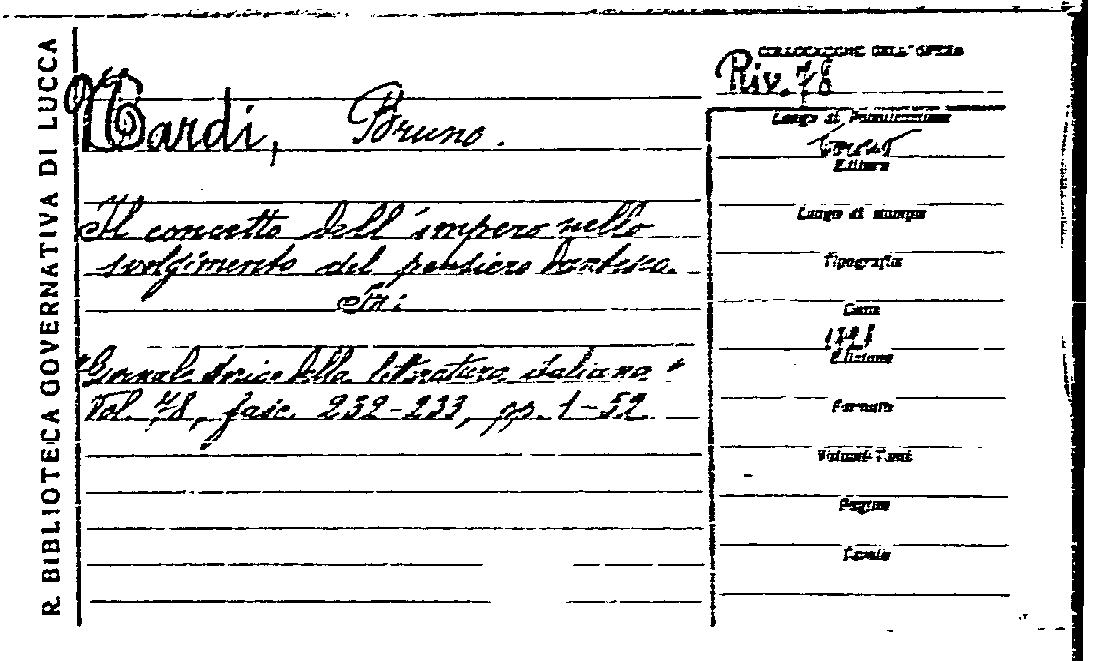 R. BIBLIOTECA GOVERNATIVA DI LUCCA
Nardi, Bruno.
Il concetto dell'impero nello
svolgimento del pensiero dantesco.
In:
"Giornale storico della letteratura italiana"
Vol. 78, fasc. 232-233, pp. 1-52
COLLOCAZIONE DELL'OPERA
Riv. 78
Luogo di Pubblicazione
Torino
Editore
Luogo di stampa
Tipografia
Data
1921
Edizione
Formato
Volumi-Tomi
Pagine
Tavole